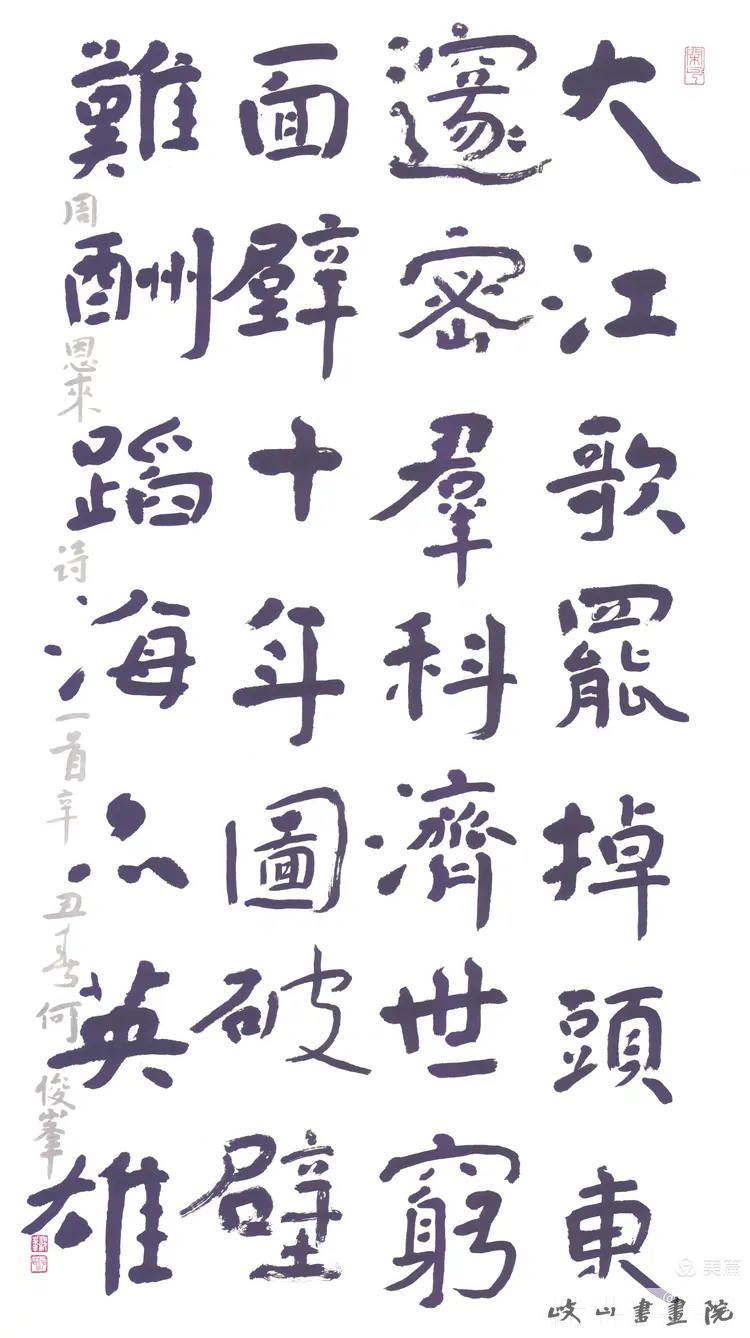 大江歌罷掉頭東
邃密羣科濟世窮
面壁十年圖破壁
難酬蹈海亦英雄
周恩來诗一首辛丑春何俊峯
美篇
@岐山書畫院